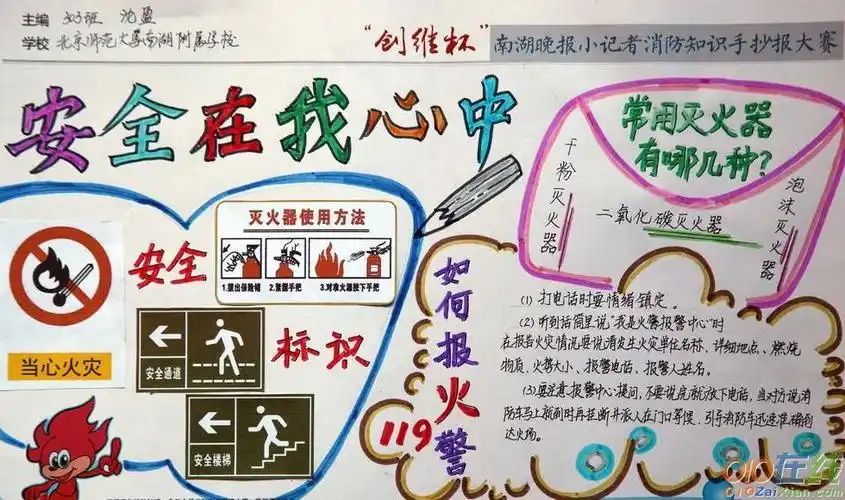 主编 303班 沈盈
学校 北京师范大学南湖附属学校
"创维杯"南湖晚报小记者消防知识手抄报大赛
安全在我心中
常用灭火器
有哪几种?
干粉灭火器
二氧化碳灭火器
泡沫灭火器
当心火灾
安全
标识
灭火器使用方法
1.拔出保险销
2.紧握手把
3.对准火源按下手把
安全通道
安全楼梯
如何报火警
119
(1) 打电话时要情绪镇定。
(2) 听到话筒里说"我是火警报警中心"时
在报告火灾情况要说清发生火灾单位名称、详细地点、燃烧
物质、火势大小、报警电话、报警人姓名。
(3)要注意报警中心提问,不要说完就放下电话,当对方说消
防车马上就到时再挂断并派人在门口等候,引导消防车迅速准确到
达火场。
010在线
010ZaiXian.com